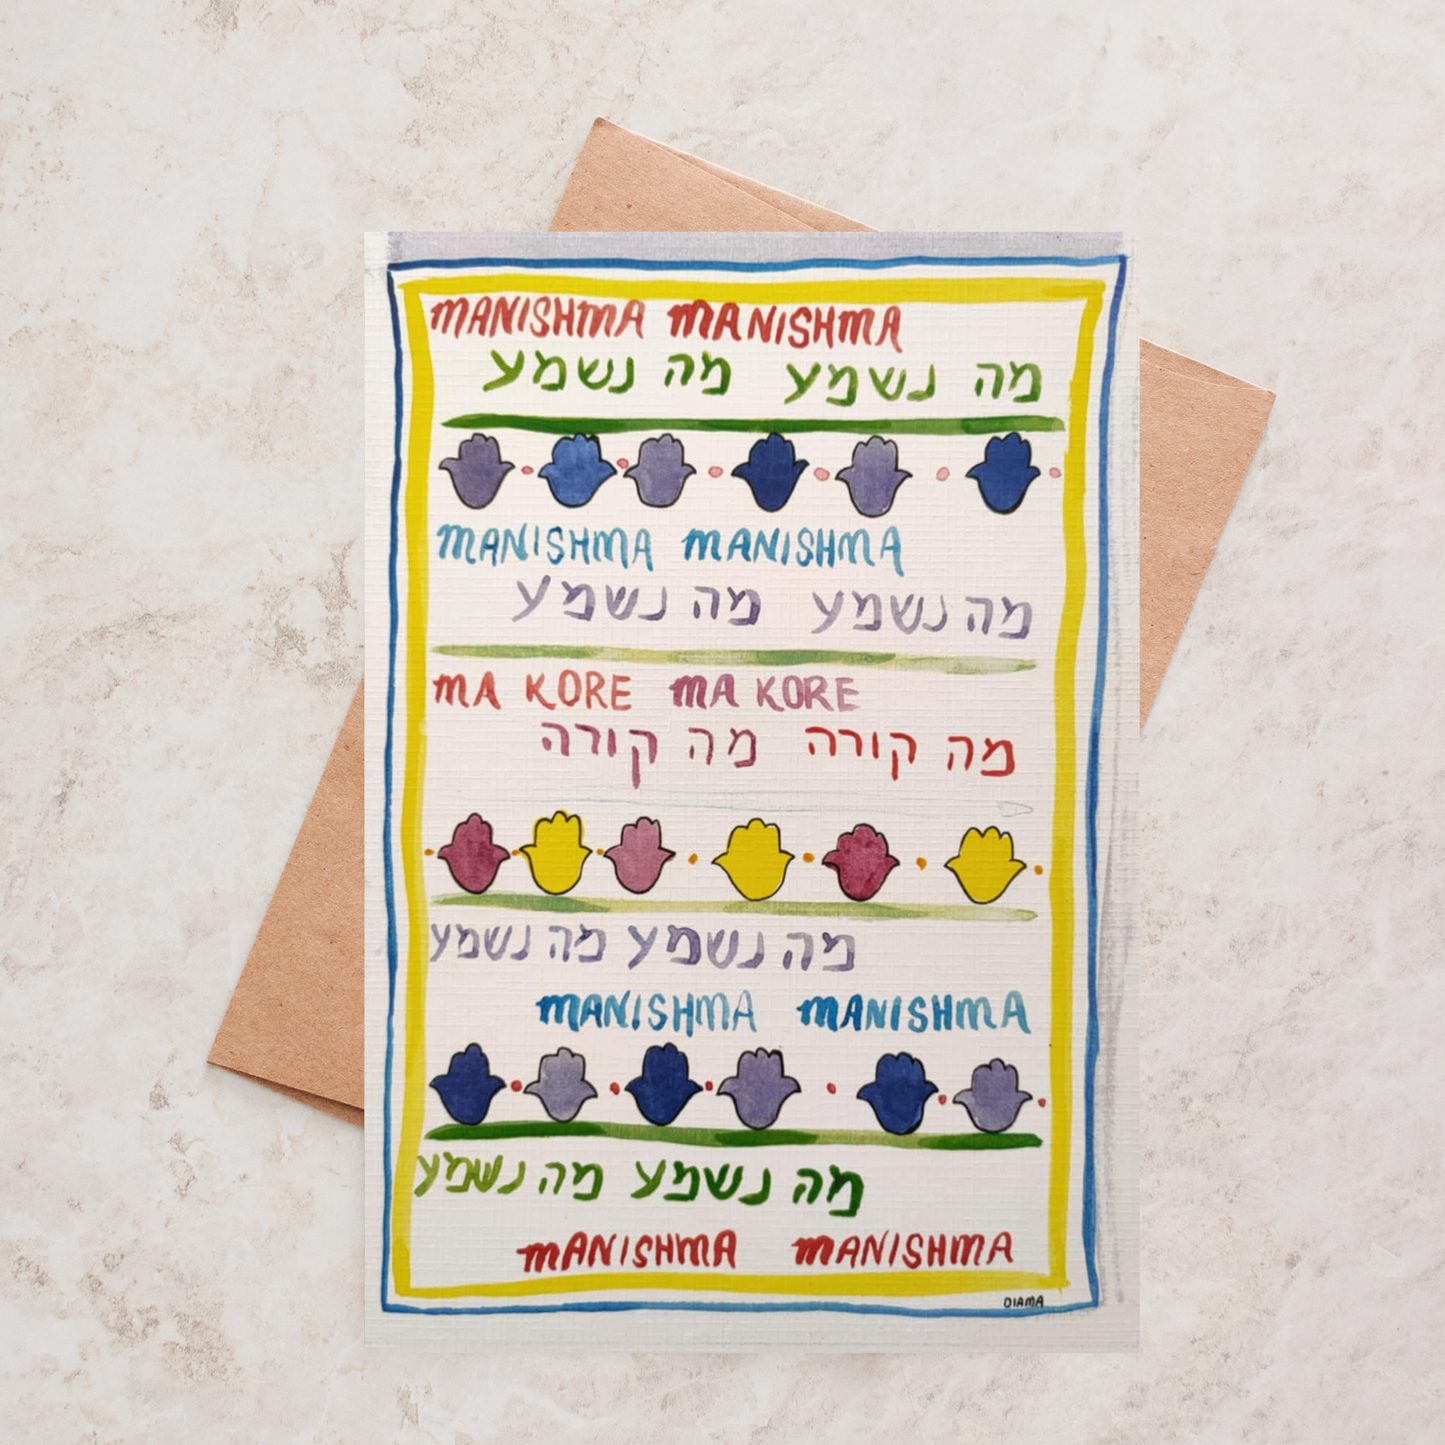 MANISHMA MANISHMA
מה נשמע מה נשמע
MANISHMA MANISHMA
מה נשמע מה נשמע
MA KORE MA KORE
מה קורה מה קורה
מה נשמע מה נשמע
MANISHMA MANISHMA
מה נשמע מה נשמע
MANISHMA MANISHMA
DIAMA